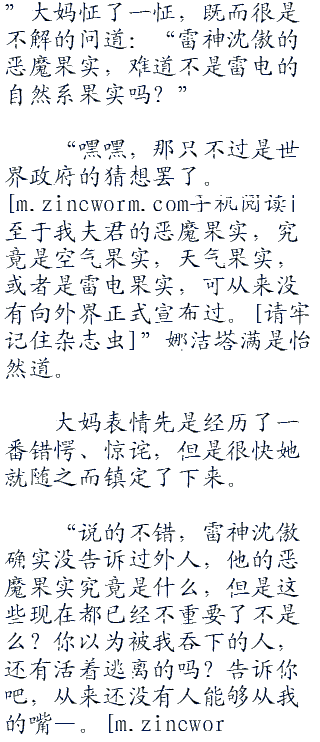 ”大妈怔了一怔，既而很是
不解的问道：“雷神沈傲的
恶魔果实，难道不是雷电的
自然系果实吗？”
“嘿嘿，那只不过是世
界政府的猜想罢了。
[m.zincworm.com手机阅读]
至于我夫君的恶魔果实，究
竟是空气果实，天气果实，
或者是雷电果实，可从来没
有向外界正式宣布过。[请牢
记住杂志虫]”娜洁塔满是怡
然道。
大妈表情先是经历了一
番错愕、惊诧，但是很快她
就随之而镇定了下来。
“说的不错，雷神沈傲
确实没告诉过外人，他的恶
魔果实究竟是什么，但是这
些现在都已经不重要了不是
么？你以为被我吞下的人，
还有活着逃离的吗？告诉你
吧，从来还没有人能够从我
的嘴—。[m.zincwor